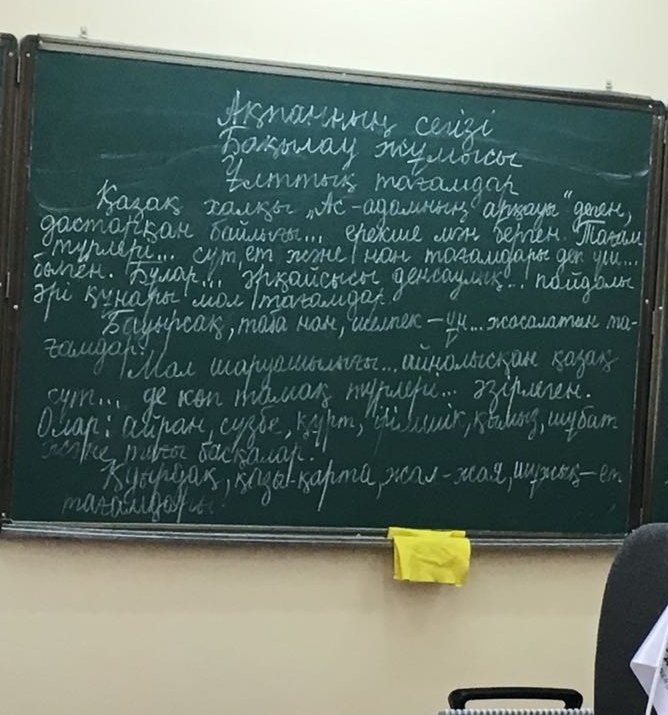 Ақпанның сегізі
Бақылау жұмысы
Ұлттық тағамдар
Қазақ халқы „Ас-адамның арқауы" деген,
дастарқан байлығы... ерекше мән берген. Тағам
түрлері... сүт, ет және нан тағамдары деп үш...
бөлген. Бұлар... әрқайсысы денсаулық... пайдалы
әрі құнары мол тағамдар.
Бауырсақ, таба нан, шелпек – ұн... жасалатын та-
ғамдар.
Мал шаруашылығы... айналысқан қазақ
сүт... де көп тамақ түрлері... әзірлеген.
Олар: айран, сүзбе, құрт, ірімшік, қымыз, шұбат
және тағы басқалар.
Қуырдақ, қазы-қарта, жал-жая, шұжық – ет
тағамдары.